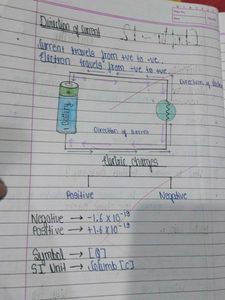 Direction of current
Current travels from +ve to -ve.
Electron travels from -ve to +ve.
Battery
Direction of
Direction of
Electric charges
Positive
Negative
Negative → -1.6 x 10⁻¹⁹
Positive → +1.6 x 10⁻¹⁹
Symbol → [Q]
SI Unit → Coulomb [C]